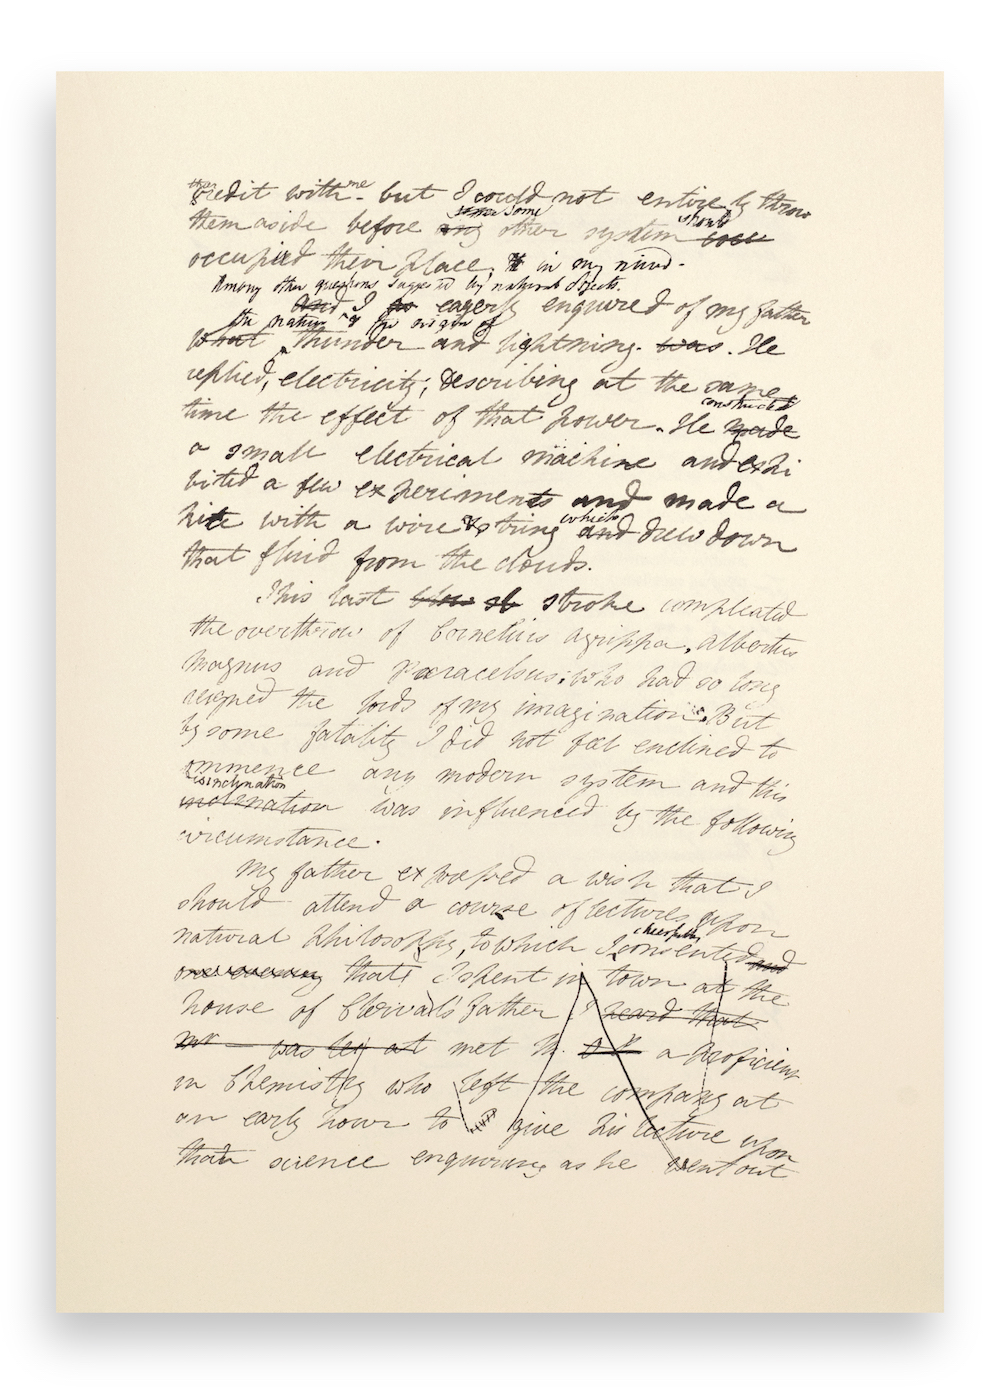 their
credit with me - but I could not entirely throw
some some should
them aside before any other system once
occupied their place, in my mind.
Among other questions suggested by natural objects.
And I eagerly enquired of my father
the nature & the origin of
what thunder and lightning. was. He
replied, electricity; describing at the same
constructed
time the effect of that power. He made
a small electrical machine and exhi
bited a few experiments and made a
which
kite with a wire & string and drew down
that fluid from the clouds.
This last blow st stroke compleated
the overthrow of Cornelius Agrippa, Albertus
Magnus and Paracelsus; who had so long
reigned the lords of my imagination. But
by some fatality I did not feel enclined to
ommence any modern system and this
disinclination
inclenation was influenced by the following
circumstance.
My father expressed a wish that I
should attend a course of lectures upon
cheerfully
natural philosophy, to which I consented and
that I spent in town at the
house of Clerval's father I heard that
Mr — was at met M. a proficient
in Chemistry who left the company at
an early hour to give his lecture upon
that science enquiring as he went out